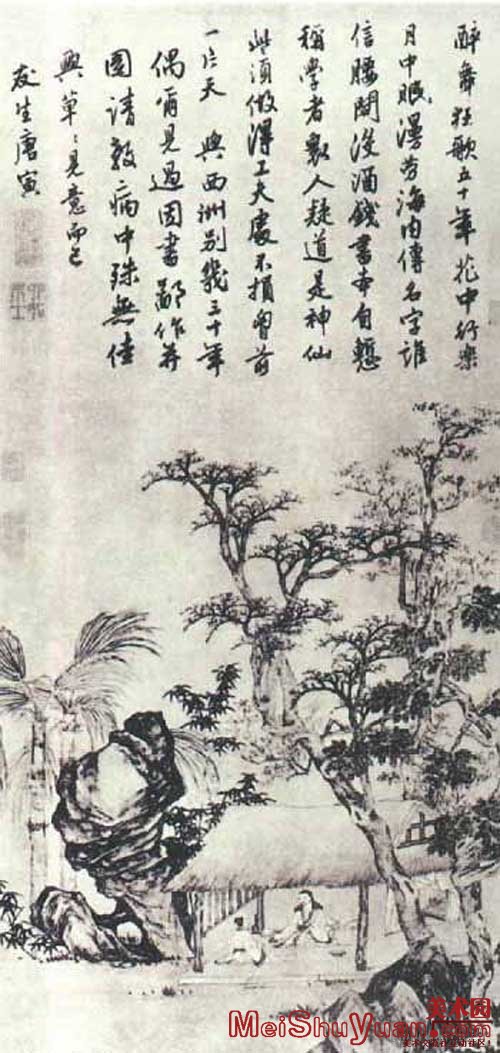 醉舞狂歌五十年花中行樂
月中眠漫勞海内傳名字誰
信腰間没酒錢書本自慙
稱學者衆人疑道是神仙
些須做得工夫處不損胷前
一片天與西洲別幾三十年
偶爾見過因書鄙作并
圖請教病中殊無佳
興草〻見意而已
友生唐寅
美术园
MeiShuYuan.com